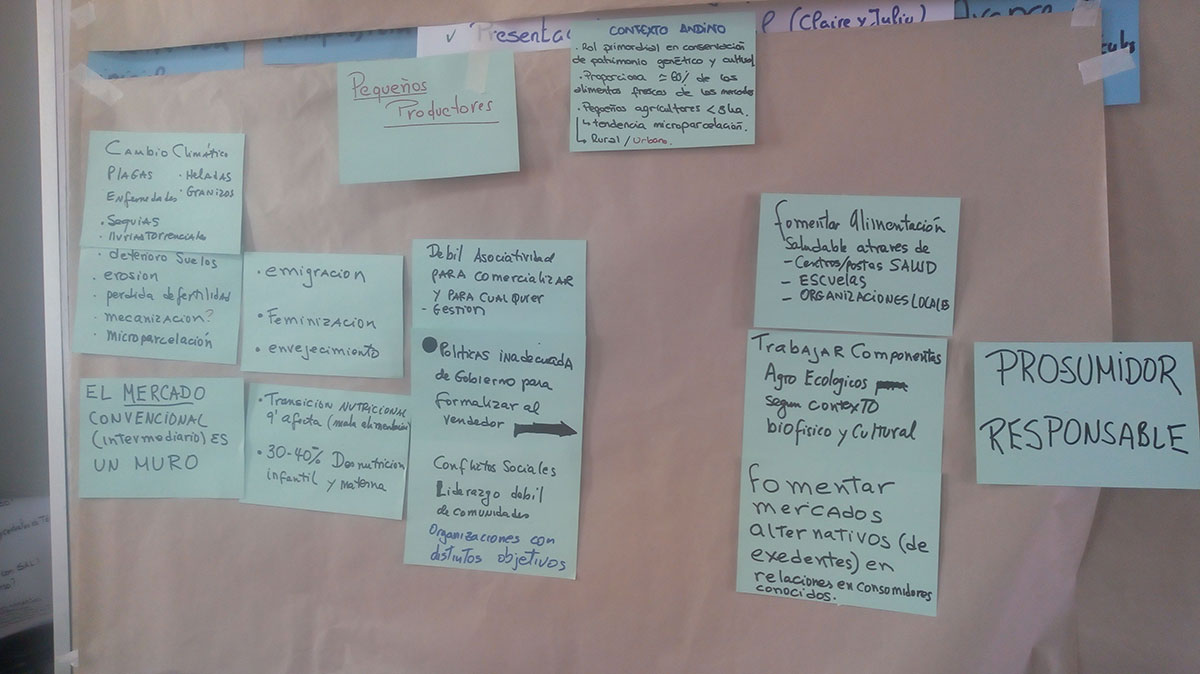 ✓ Presenta
(Claire y Julio)
Pequeños
Productores
CONTEXTO ANDINO
· Rol primordial en conservación
de patrimonio genético y cultural
· Proporciona ≃ 60% de los
alimentos frescos de los mercados
· Pequeños agricultores < 5ha.
↳ tendencia microparcelación.
↳ Rural / Urbano.
CAMBIO Climático
PLAGAS · HELADAS
Enfermedades · GRANIZOS
· Sequias
· lluvias TORRENCIALES
· deterioro suelos
· erosion
· perdida de fertilidad
· mecanizacion?
· Microparcelación
EL MERCADO
CONVENCIONAL
(intermediario) ES
UN MURO
· emigracion
· Feminizacion
· envejecimiento
· Transicion NUTRICIONAL
q' afecta (mala alimentacion)
· 30-40% Desnutricion
infantil y materna
Debil Asociatividad
PARA COMERCIALIZAR
Y PARA CUALQUIER
- GESTION
● Politicas inadecuada
de Gobierno para
formalizar al
vendedor
Conflictos Sociales
Liderazgo debil
de comunidades
Organizaciones con
distintos objetivos
fomentar Alimentación
Saludable atraves de
- Centros/postas SALUD
- ESCUELAS
- ORGANIZACIONES LOCALES
TRABAJAR Componentes
Agro Ecológicos
segun contexto
biofisico y Cultural
Fomentar
mercados
alternativos (de
exedentes) en
relaciones en consumidores
conocidos.
PROSUMIDOR
RESPONSABLE